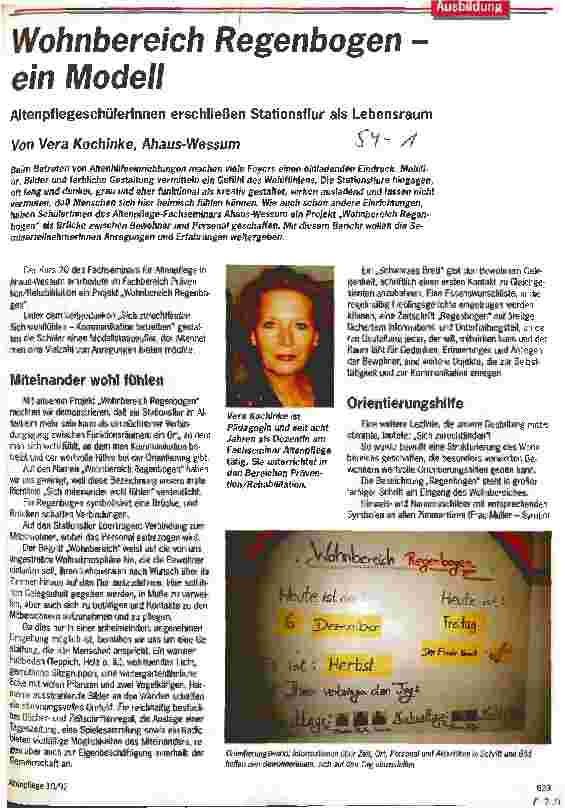 Ausbildung
Wohnbereich Regenbogen –
ein Modell
AltenpflegeschülerInnen erschließen Stationsflur als Lebensraum
Von Vera Kochinke, Ahaus-Wessum
54-1
Beim Betreten von Altenhilfeeinrichtungen machen viele Foyers einen einladenden Eindruck. Mobili-
ar, Bilder und farbliche Gestaltung vermitteln ein Gefühl des Wohlfühlens. Die Stationsflure hingegen,
oft lang und dunkel, grau und eher funktional als kreativ gestaltet, wirken ausladend und lassen nicht
vermuten, daß Menschen sich hier heimisch fühlen können. Wie auch schon andere Einrichtungen,
haben SchülerInnen des Altenpflege-Fachseminars Ahaus-Wessum ein Projekt „Wohnbereich Regen-
bogen" als Brücke zwischen Bewohner und Personal geschaffen. Mit diesem Bericht wollen die Se-
minarteilnehmerInnen Anregungen und Erfahrungen weitergeben.
Der Kurs 20 des Fachseminars für Altenpflege in
Ahaus-Wessum erarbeitete im Fachbereich Präven-
tion/Rehabilitation ein Projekt „Wohnbereich Regenbo-
gen"
Unter dem „Sich zurechtfinden
Sich wohlfühlen – Kommunikation betreiben" gestal-
ten die Schüler einen
eine Vielzahl von Anregungen bieten möchte.
Miteinander wohl fühlen
Mit unserem Projekt „Wohnbereich Regenbogen"
möchten wir demonstrieren, daß ein Stationsflur in Al-
tenheim mehr sein kann als ein nüchterner Verbin-
dungsgang zwischen Funktionsräumen: ein Ort, an dem
man sich wohl fühlt, an dem man Kommunikation be-
treibt und der wertvolle Hilfen bei der Orientierung gibt.
Auf den Namen „Wohnbereich Regenbogen" haben
wir uns geeinigt, weil diese Bezeichnung unsere erste
Richtlinie „Sich miteinander wohl fühlen" verdeutlicht.
Ein Regenbogen symbolisiert eine Brücke, und
Brücken schaffen Verbindungen.
Auf den Stationsflur übertragen: Verbindung zum
Mitbewohner, wobei das Personal einbezogen wird.
Der Begriff „Wohnbereich" weist auf die von uns
angestrebte Wohnatmosphäre hin, die die Bewohner
einladen soll, ihren Lebensraum nach Wunsch über ihr
Zimmer hinaus auf den Flur auszudehnen. Hier soll ih-
nen Gelegenheit gegeben werden, in Muße zu verwei-
len, aber auch sich zu betätigen und Kontakte zu den
Mitbewohnern aufzunehmen und zu pflegen.
Da dies nur in einer anheimelnden, angenehmen
Umgebung möglich ist, bemühen wir uns um eine Ge-
staltung, die alle Menschen anspricht. Ein warmer
Fußboden (Teppich, Holz o. ä.), wohltuendes Licht,
gemütliche Sitzgruppen, eine wintergartenähnliche
Ecke mit vielen Pflanzen und zwei Vogelkäfigen, Har-
monie ausstrahlende Bilder an den Wänden schaffen
ein stimmungsvolles Umfeld. Ein reichhaltig bestück-
tes Bücher- und Zeitschriftenregal, die Auslage einer
Tageszeitung, eine Spielesammlung sowie ein Radio
bieten vielfältige Möglichkeiten des Miteinanders,
aber auch zur Eigenbeschäftigung innerhalb der
Gemeinschaft an.
Vera Kochinke ist
Pädagogin und seit acht
Jahren als Dozentin am
Fachseminar Altenpflege
tätig. Sie unterrichtet in
den Bereichen Präven-
tion/Rehabilitation.
Ein „Schwarzes Brett" gibt den Bewohnern Gele-
genheit, schriftlich einen ersten Kontakt zu Gleichge-
sinnten anzubahnen. Eine Essenswunschliste, in die
regelmäßig Lieblingsgerichte eingetragen werden
können, eine Zeitschrift „Regenbogen" mit breitge-
fächertem Informations- und Unterhaltungsteil, an de-
ren Gestaltung jeder, der will, mitwirken kann und der
Raum läßt für Gedanken, Erinnerungen und Anliegen
der Bewohner, sind weitere Objekte, die zur Selbst-
tätigkeit und zur Kommunikation anregen.
Orientierungshilfe
Eine weitere Leitlinie, die unsere Gestaltung mitbe-
stimmte, lautete: „Sich zurechtfinden"!
So wurde bewußt eine Strukturierung des Wohn-
bereichs geschaffen, die besonders verwirrten Be-
wohnern wertvolle Orientierungshilfen geben kann.
Die Bezeichnung „Regenbogen" steht in großer
farbiger Schrift am Eingang des Wohnbereiches.
Hinweis- und Namensschilder mit entsprechenden
Symbolen an allen Zimmertüren (Frau Müller – Symbol
Wohnbereich Regenbogen
Heute ist der:
Heute ist:
6 Dezember
Freitag
ist: Herbst
Orientierungswand: Informationen über Zeit, Ort, Personal und Aktivitäten in Schrift und Bild
helfen den BewohnerInnen, sich auf den Tag einzustellen
Altenpflege 10/92
629